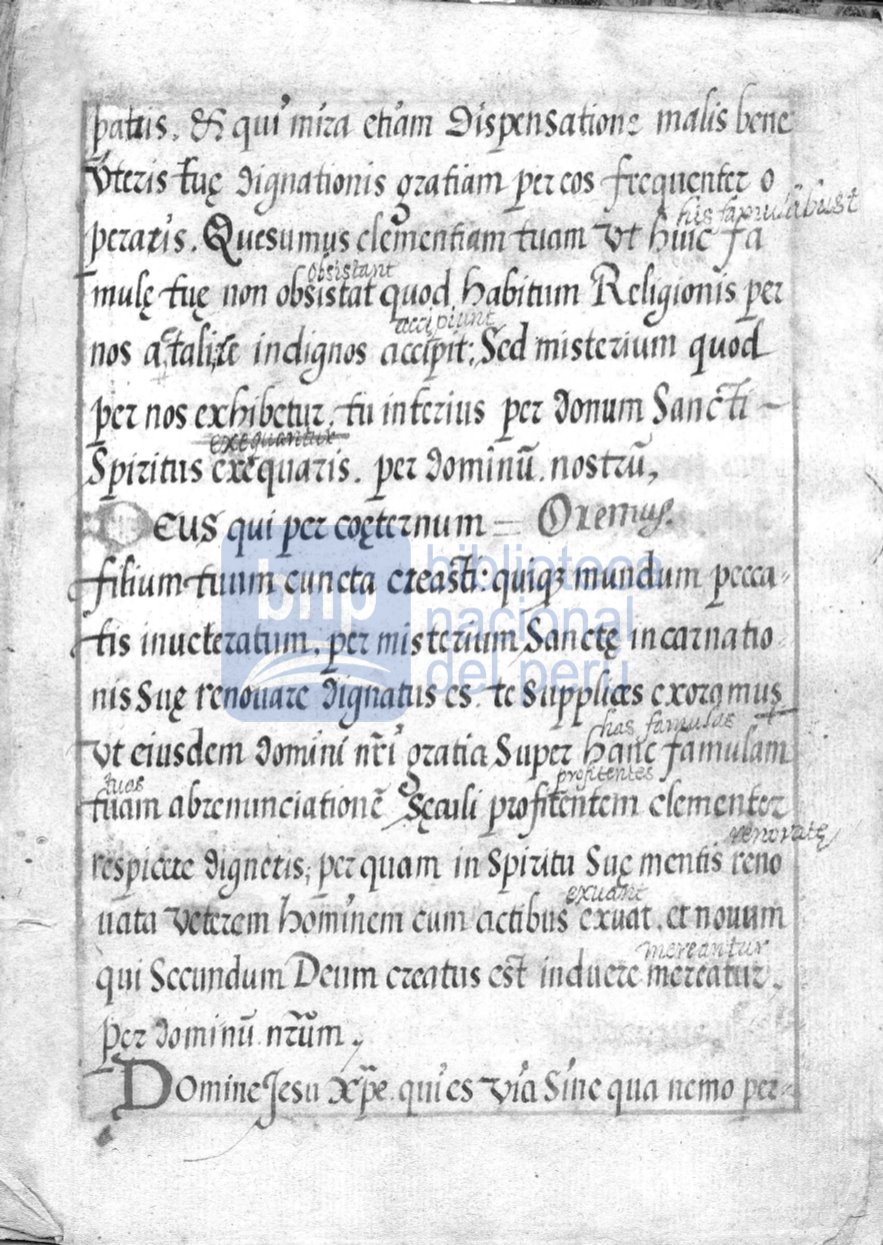 patris. & qui mira etiam Dispensatione malis bene
Vteris tuę dignationis gratiam per eos frequenter o
his famulibust
peraris. Quesumus clementiam tuam Vt huic fa
obsistant
mulę tuę non obsistat quod habitum Religionis per
accipiunt
nos indignos accipit: Sed misterium quod
per nos exhibetur, tu interius per donum Sancti
exequantur
Spiritus exequaris. per dominũ. nostrũ,
DEUS qui per coęternum = Oremus.
filium tuum cuncta creasti: quiqȝ mundum pecca-
tis inueteratum, per misterium Sanctę incarnatio
nis Suę renouare dignatus es. te Supplices exoramus
has famulas
Vt eiusdem domini nr̃i gratia Super hanc famulam
tuas profitentes
tuam abrenunciationẽ Sęculi profitentem clementer
renovatę
respicere digneris, per quam in Spiritu Suę mentis reno
exuant
uata Veterem hominem cum actibus exuat. et nouum
mereantur
qui Secundum Deum creatus est induere mereatur.
per dominũ nr̃um,
Domine Jesu Xp̃e qui es Via Sine qua nemo per-
bnp biblioteca
nacional
del perú